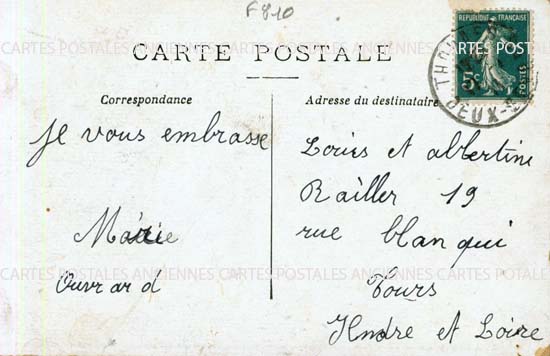 F810
CARTE POSTALE
REPUBLIQUE FRANÇAISE
5c
POSTES
DEUX-S
Correspondance
Adresse du destinataire
Je vous embrasse
Marie
Ouvrard
Louis et albertine
Railler 19
rue blanqui
Tours
Indre et Loire
CARTES POSTALES ANCIENNES CARTES POSTALES ANCIENNES CARTES POST
CARTES POSTALES ANCIENNES CARTES POSTALES ANCIENNES CARTES POTALES